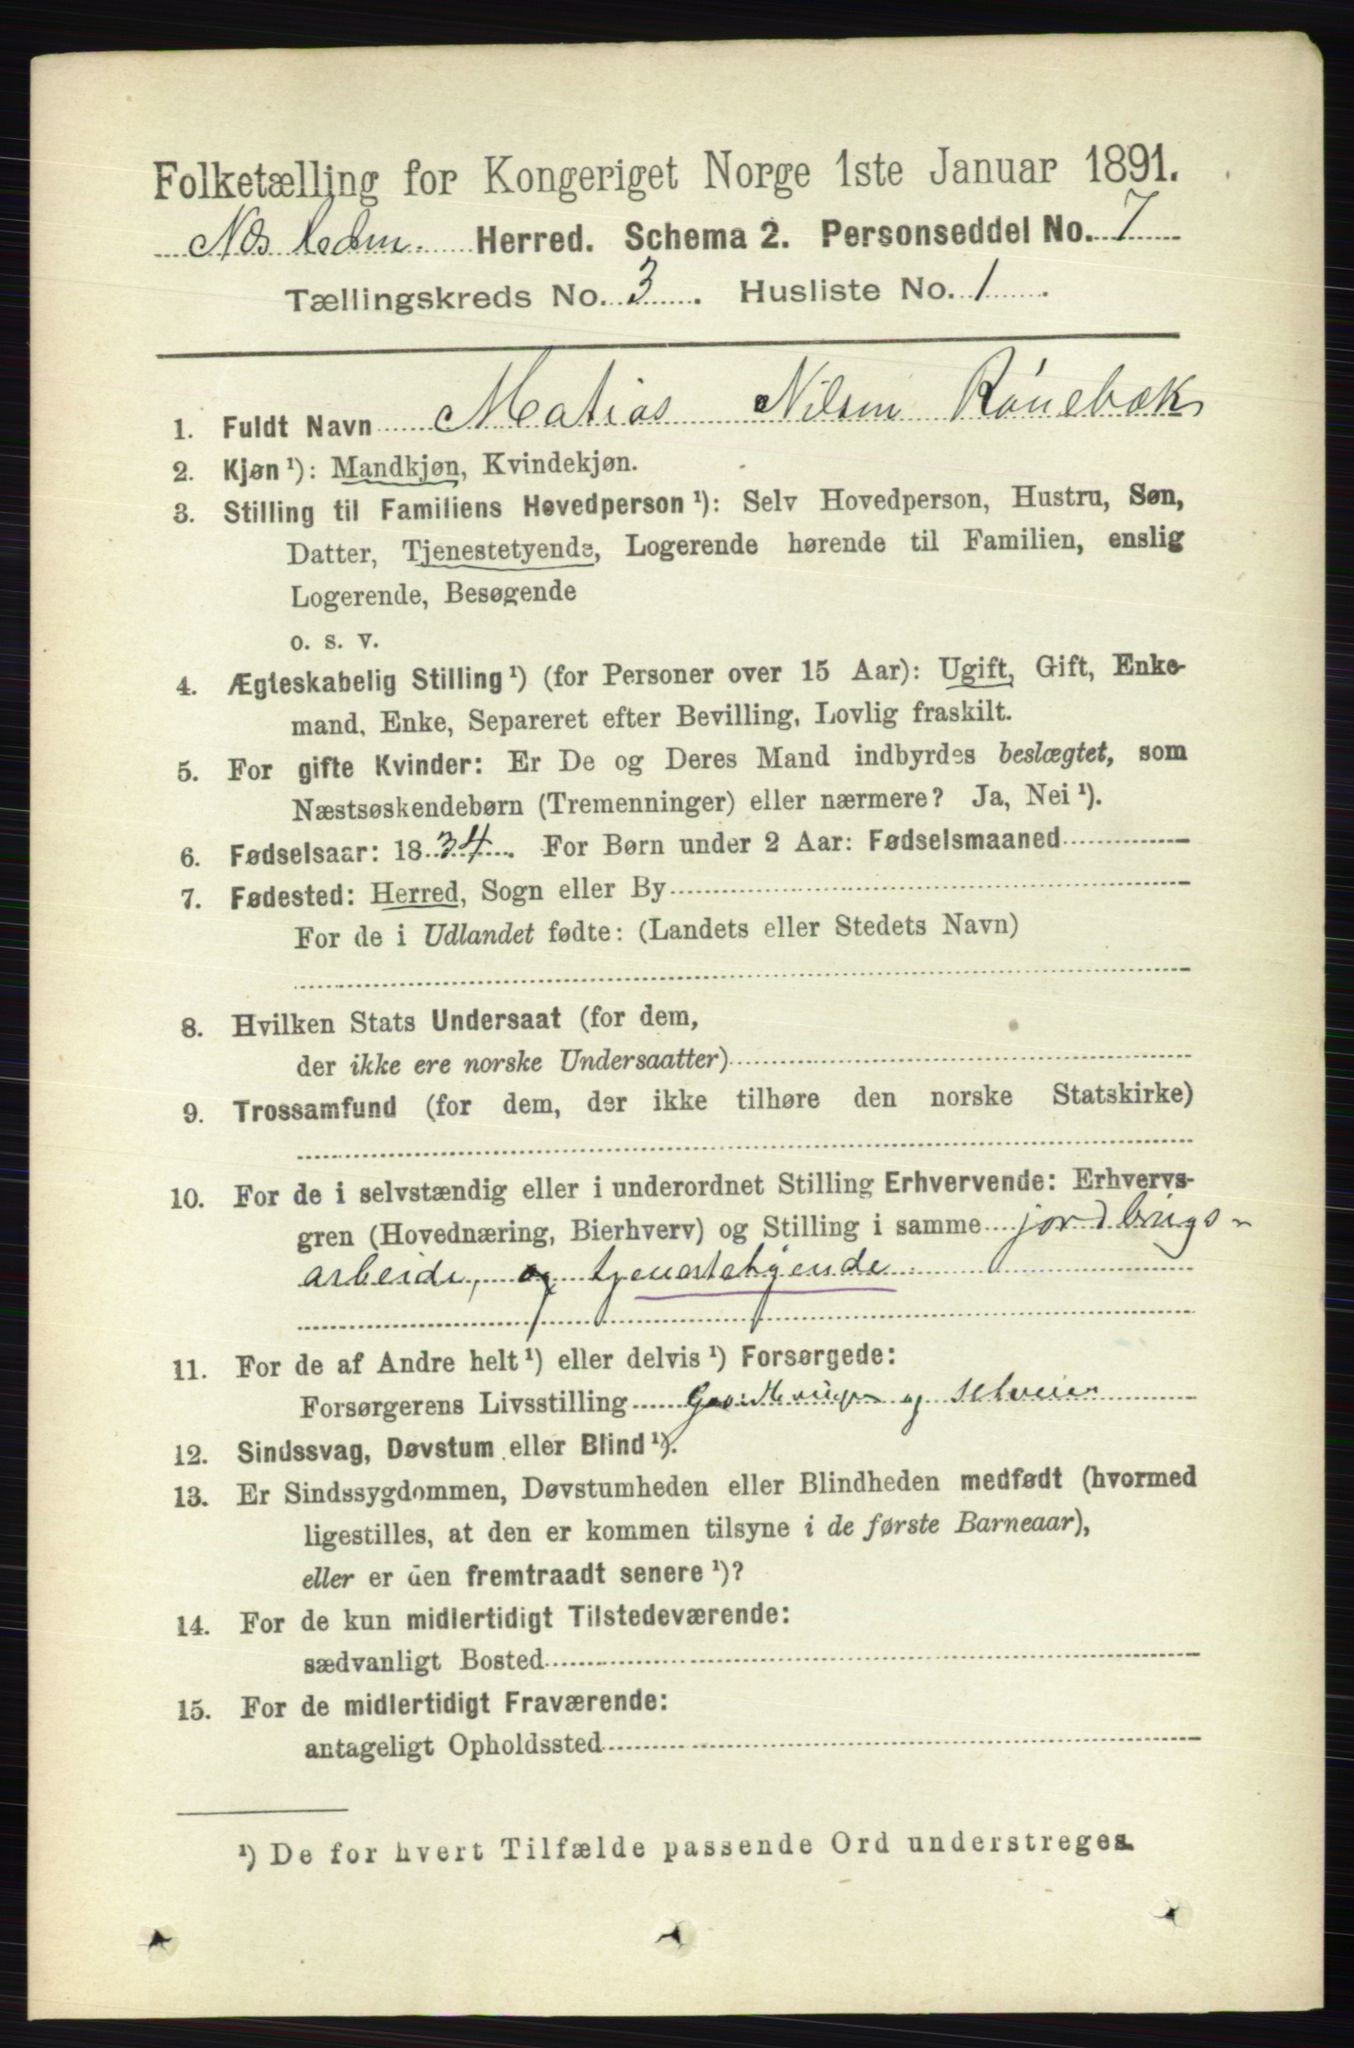 Folketælling for Kongeriget Norge 1ste Januar 1891.
Næs Hedm. Herred. Schema 2. Personseddel No. 7
Tællingskreds No. 3. Husliste No. 1.
1. Fuldt Navn Matias Nilsen Rónebæk
2. Kjøn ¹): Mandkjøn, Kvindekjøn.
3. Stilling til Familiens Hovedperson ¹): Selv Hovedperson, Hustru, Søn,
Datter, Tjenestetyende, Logerende hørende til Familien, enslig
Logerende, Besøgende
o. s. v.
4. Ægteskabelig Stilling ¹) (for Personer over 15 Aar): Ugift, Gift, Enke-
mand, Enke, Separeret efter Bevilling, Lovlig fraskilt.
5. For gifte Kvinder: Er De og Deres Mand indbyrdes beslægtet, som
Næstsøskendebørn (Tremenninger) eller nærmere? Ja, Nei ¹).
6. Fødselsaar: 1834. For Børn under 2 Aar: Fødselsmaaned
7. Fødested: Herred, Sogn eller By
For de i Udlandet fødte: (Landets eller Stedets Navn)
8. Hvilken Stats Undersaat (for dem,
der ikke ere norske Undersaatter)
9. Trossamfund (for dem, der ikke tilhøre den norske Statskirke)
10. For de i selvstændig eller i underordnet Stilling Erhvervende: Erhvervs-
gren (Hovednæring, Bierhverv) og Stilling i samme jordbrugs-
arbeide, og tjenestetyende
11. For de af Andre helt ¹) eller delvis ¹) Forsørgede:
Forsørgerens Livsstilling Gaardbruger og selveier
12. Sindssvag, Døvstum eller Blind ¹).
13. Er Sindssygdommen, Døvstumheden eller Blindheden medfødt (hvormed
ligestilles, at den er kommen tilsyne i de første Barneaar),
eller er den fremtraadt senere ¹)?
14. For de kun midlertidigt Tilstedeværende:
sædvanligt Bosted
15. For de midlertidigt Fraværende:
antageligt Opholdssted
¹) De for hvert Tilfælde passende Ord understreges.